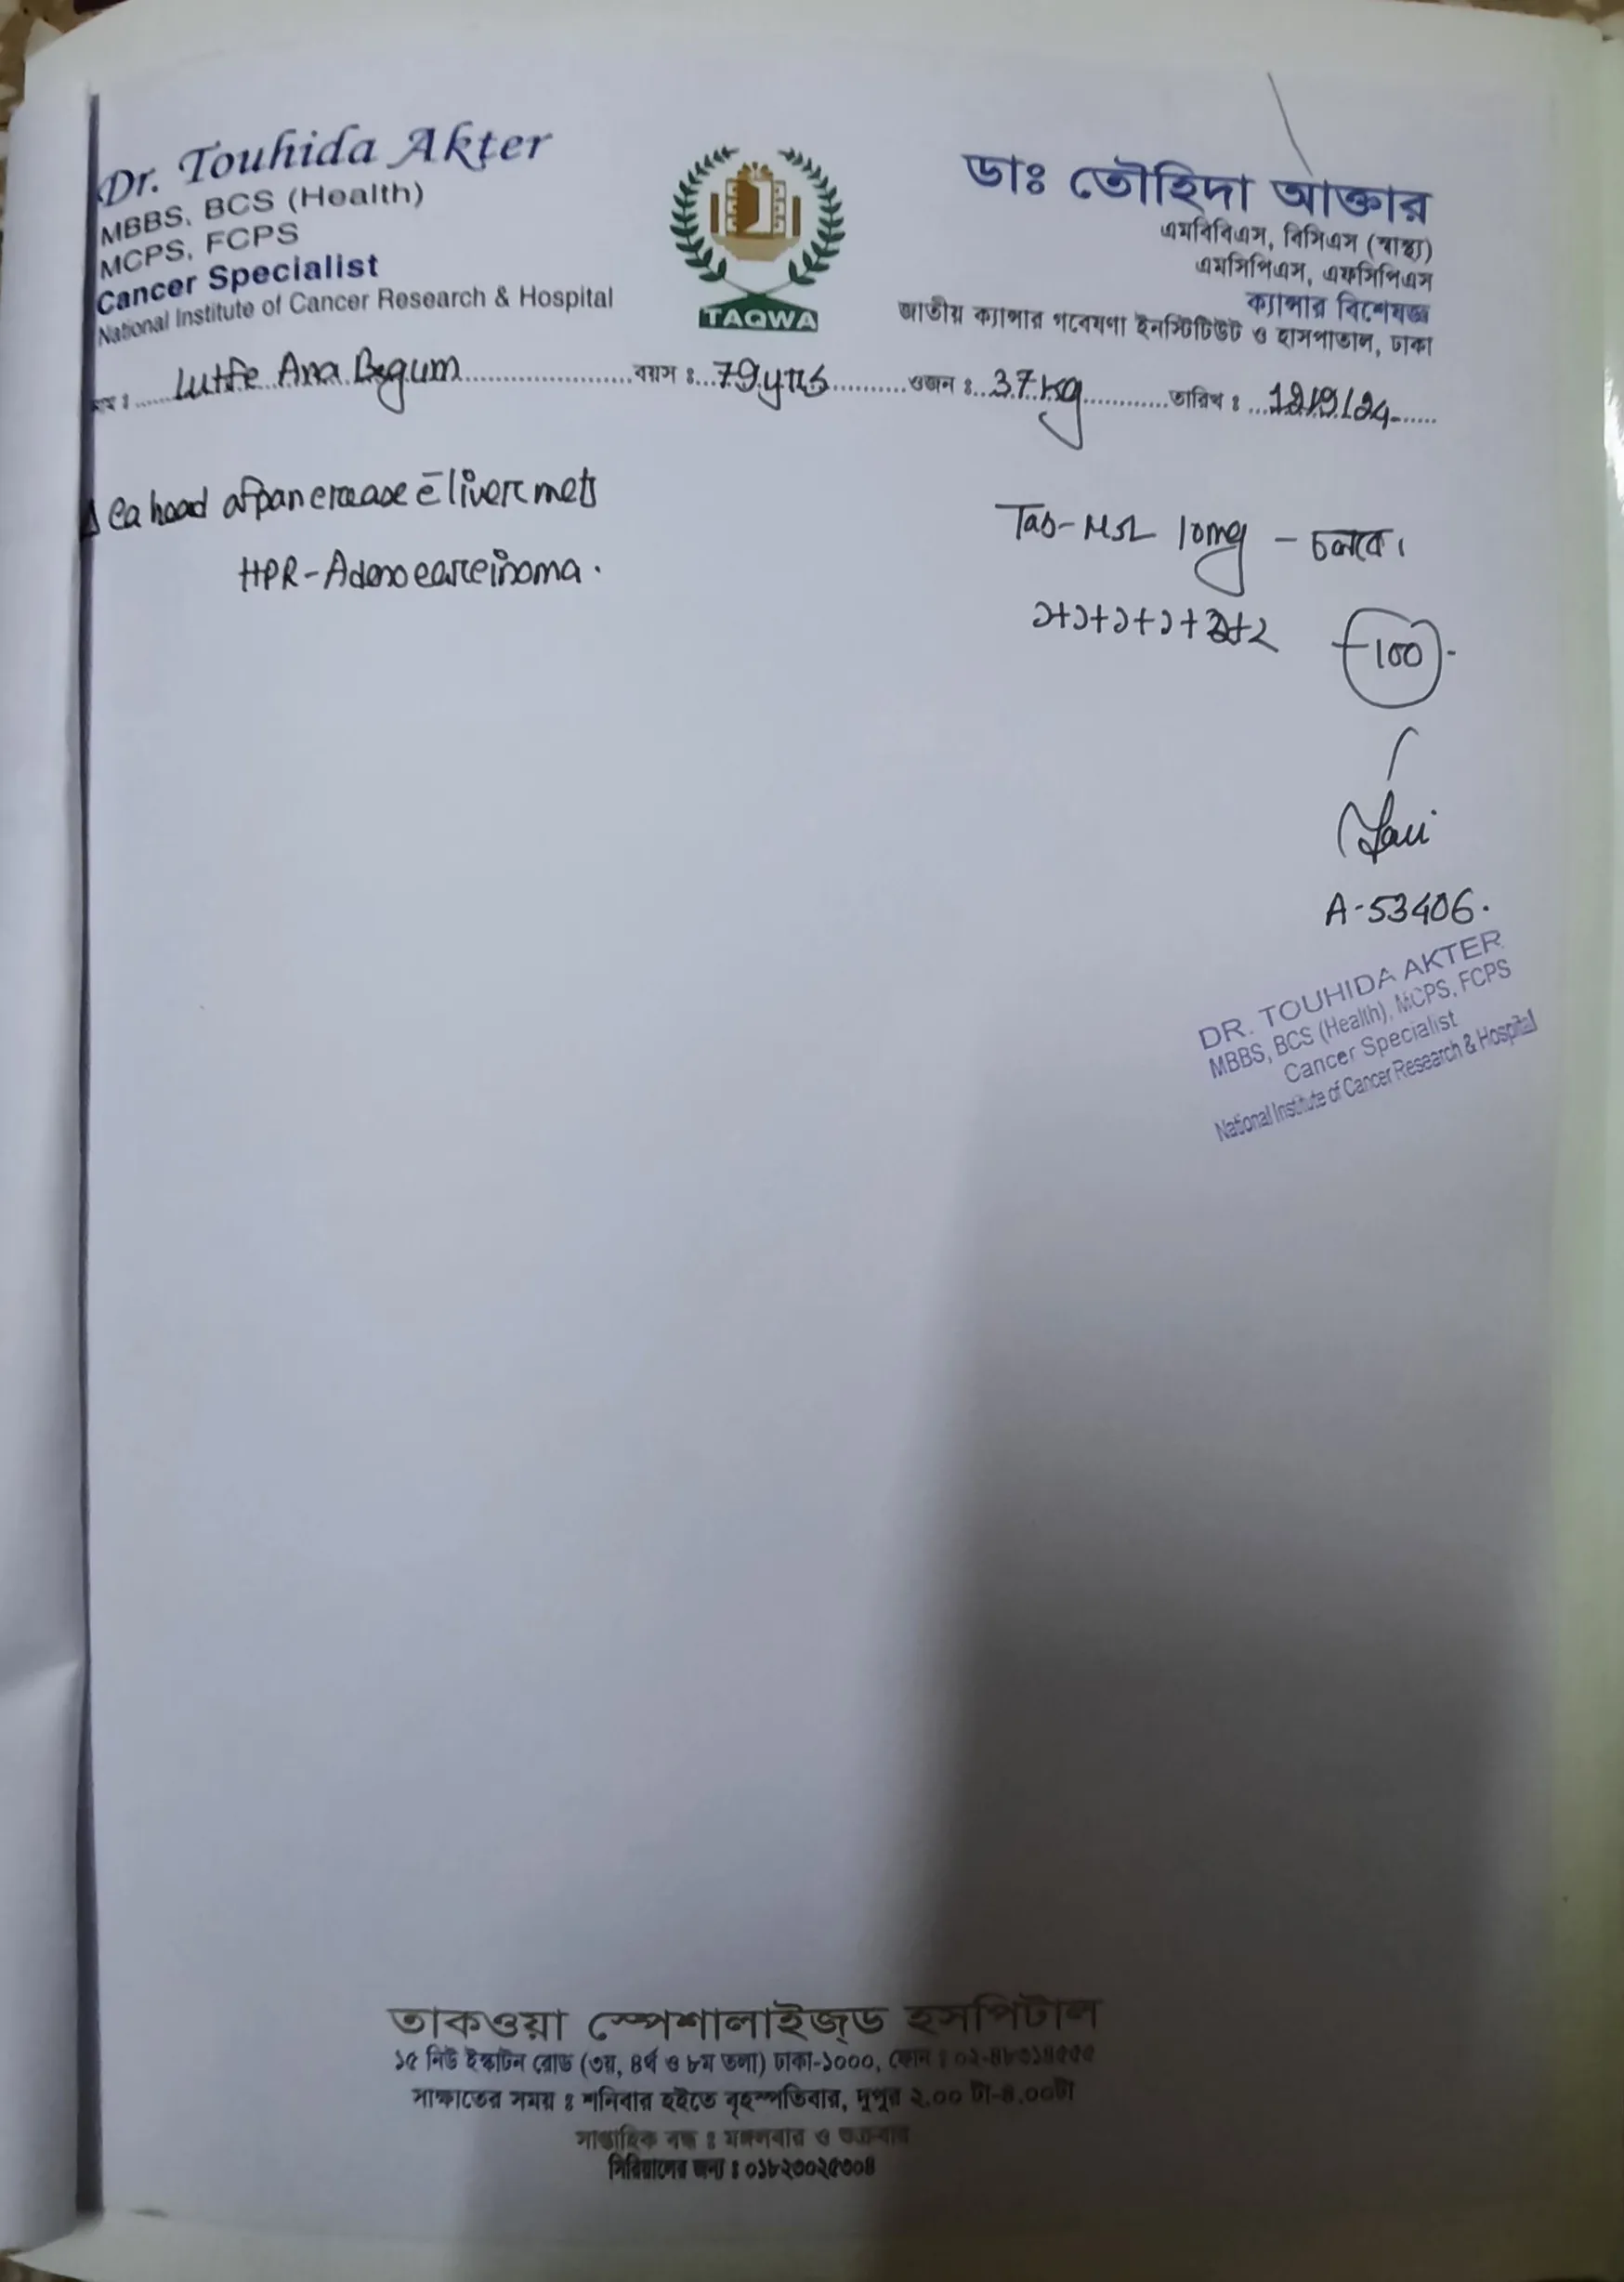 Dr. Touhida Akter
MBBS, BCS (Health)
MCPS, FCPS
Cancer Specialist
National Institute of Cancer Research & Hospital
TAQWA
ডাঃ তৌহিদা আক্তার
এমবিবিএস, বিসিএস (স্বাস্থ্য)
এমসিপিএস, এফসিপিএস
ক্যান্সার বিশেষজ্ঞ
জাতীয় ক্যান্সার গবেষণা ইনস্টিটিউট ও হাসপাতাল, ঢাকা
নাম ঃ Lutfe Ara Begum বয়স ঃ 79yrs ওজন ঃ 37kg তারিখ ঃ 12/9/24
ca head of pancrease c̄ liver mets
HPR-Adenocarcinoma.
Tab- 10mg - চলবে।
১+১+১+১+ +২
100
A-53406.
DR. TOUHIDA AKTER
MBBS, BCS (Health), MCPS, FCPS
Cancer Specialist
National Institute of Cancer Research & Hospital
তাকওয়া স্পেশালাইজ্ড হসপিটাল
১৫ নিউ ইস্কাটন রোড (৩য়, ৪র্থ ও ৮ম তলা) ঢাকা-১০০০, ফোন ঃ ০২-৪৮৩১৪৫৫৫
সাক্ষাতের সময় ঃ শনিবার হইতে বৃহস্পতিবার, দুপুর ২.০০ টা-৪.০০টা
সাপ্তাহিক বন্ধ ঃ মঙ্গলবার ও শুক্রবার
সিরিয়ালের জন্য ঃ ০১৮২৩০২৫৩০৪